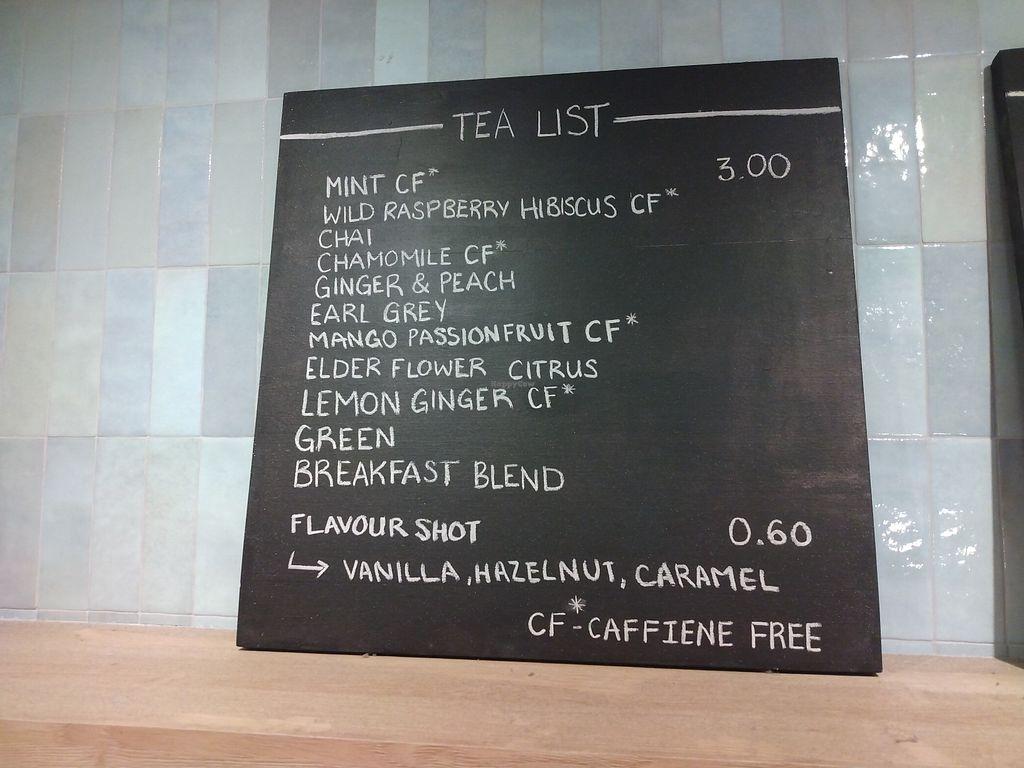 TEA LIST
MINT CF* 3.00
WILD RASPBERRY HIBISCUS CF*
CHAI
CHAMOMILE CF*
GINGER & PEACH
EARL GREY
MANGO PASSIONFRUIT CF*
ELDER FLOWER CITRUS
HappyCow
LEMON GINGER CF*
GREEN
BREAKFAST BLEND
FLAVOUR SHOT 0.60
↳ VANILLA, HAZELNUT, CARAMEL
CF*-CAFFIENE FREE